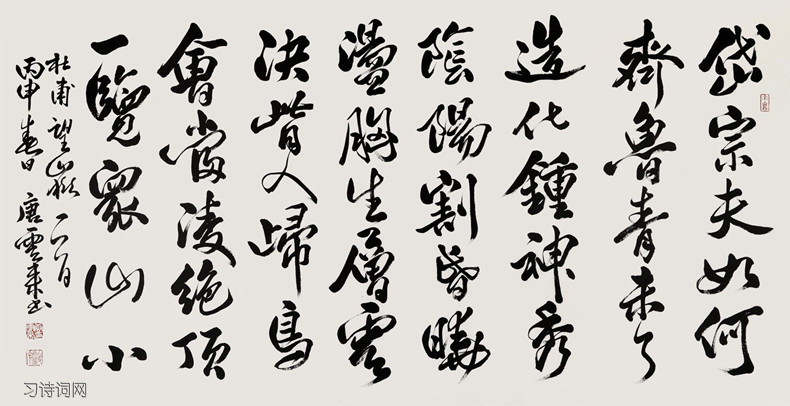 岱宗夫如何
齊魯青未了
造化鍾神秀
陰陽割昏曉
盪胸生層雲
決眥入歸鳥
會當凌絕頂
一覽眾山小
杜甫望嶽一首
丙申春日 唐雲來書
习诗词网